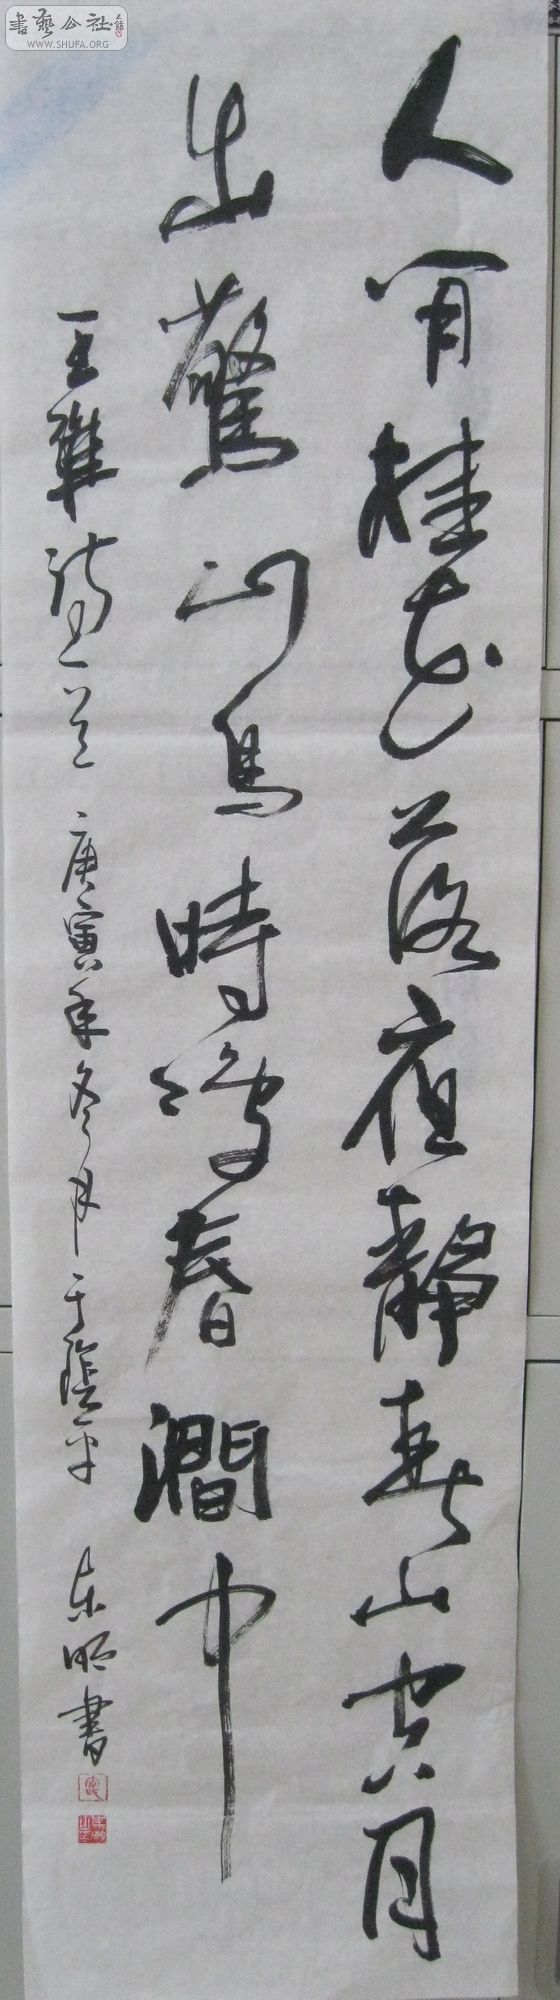 人闲桂花落夜静春山空月
出驚山鳥時鳴春澗中
王維詩一首 庚寅年冬月于陰平 东明書
書藝公社
WWW.SHUFA.ORG